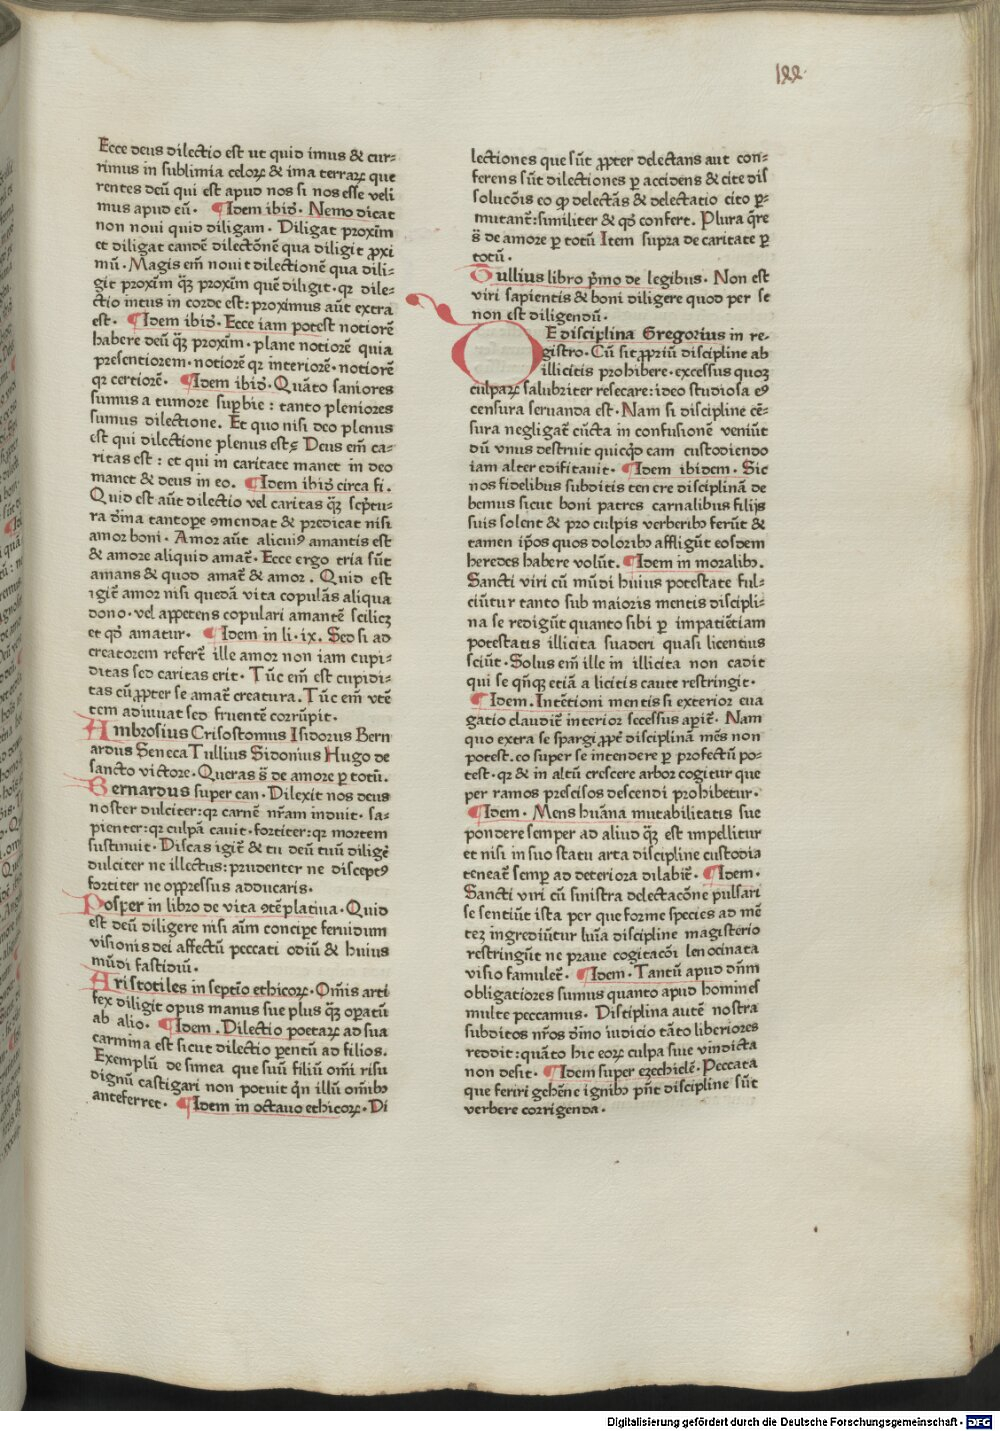 lxx.
Ecce deus dilectio est ut quid imus & cur-
rimus in sublimia celoꝝ & ima terraꝝ que
rentes deū qui est apud nos si nos esse veli
mus apud eū. ¶Idem ibid̄. Nemo dicat
non noui quid diligam. Diligat proxim̄
et diligat eandē dilectōnē qua diligit ꝓxi
mū. Magis em̄ nouit dilectionē qua dili-
git proxim̄ qꝫ̄ proxim̄ quē diligit. qꝛ dile-
ctio intus in corde est: proximus aūt extra
est. ¶Idem ibid̄. Ecce iam potest notiorē
habere deū qꝫ̄ proxim̄. plane notiorē quia
presentiorem. notiorē qꝛ interiorē. notiorē
qꝛ certiorē. ¶Idem ibid̄. Quāto saniores
sumus a tumore suꝑbie: tanto pleniores
sumus dilectione. Et quo nisi deo plenus
est qui dilectione plenus est. Deus em̄ ca-
ritas est: et qui in caritate manet in deo
manet & deus in eo. ¶Idem ibid̄ circa fi.
Quid est aūt dilectio vel caritas qꝫ̄ scp̄tu-
ra d̄ina tantopere ꝯmendat & predicat nisi
amor boni. Amor aūt alicuiꝰ amantis est
& amore aliquid amat̄. Ecce ergo tria sūt
amans & quod amat̄ & amor. Quid est
igit̄ amor nisi quedā vita copulās aliqua
duo. vel appetens copulari amantē scilicꝫ
et qd̄ amatur. ¶Idem in li. ix. Sed si ad
creatorem refert̄ ille amor non iam cupi-
ditas sed caritas erit. Tūc em̄ est cupidi-
tas cū ꝓpter se amat̄ creatura. Tūc em̄ vtē
tem adiuuat sed fruentē corrūpit.
Ambrosius Crisostomus Isidorus Bern
ardus Seneca Tullius Sidonius Hugo de
sancto victore. Queras s̄ de amore ꝑ totū.
Bernardus super can. Dilexit nos deus
noster dulciter: qꝛ carnē nr̄am induit. sa-
pienter: qꝛ culpā cauit. fortiter: qꝛ mortem
sustinuit. Discas igit̄ & tu deū tuū diligē
dulciter ne illectus: prudenter ne disceptꝰ
fortiter ne oppressus adducaris.
Posper in libro de vita ꝯtēplatiua. Quid
est deū diligere nisi aīm concipe feruidum
visionis dei affectū peccati odiū & huius
mūdi fastidiū.
Aristotiles in septīo ethicoꝝ. Om̄is arti
fex diligit opus manus sue plus qꝫ̄ oꝑatū
ab alio. ¶Idem. Dilectio poetaꝝ ad sua
carmina est sicut dilectio ꝑentū ad filios.
Exemplū de simea que suū filiū om̄i risu
dignū castigari non potuit qn̄ illū om̄ibꝫ
anteferret. ¶Idem in octauo ethicoꝝ. Di
lectiones que sūt ꝓpter delectans aut con-
ferens sūt dilectiones ꝑ accidens & cite dis
solucōis eo ꝙ delectās & delectatio cito ꝑ-
mutant̄: similiter & qd̄ confert. Plura q̄re
s̄ de amore ꝑ totū Item supra de caritate ꝑ
totū.
Tullius libro p̄mo de legibus. Non est
viri sapientis & boni diligere quod per se
non est diligendū.
DE disciplina Gregorius in re-
gistro. Cū sit ꝓpriū discipline ab
illicitis prohibere. excessus quoꝫ
culpaꝝ salubriter resecare: ideo studiosa eꝰ
censura seruanda est. Nam si discipline cē-
sura negligat̄ cūcta in confusionē veniūt
dū vnus destruit quicq̄d eam custodiendo
iam alter edificauit. ¶Idem ibidem. Sic
nos fidelibus subditis tenere disciplinā de
bemus sicut boni patres carnalibus filijs
suis solent & pro culpis verberibꝫ ferūt &
tamen ip̄os quos doloribꝫ affligūt eosdem
heredes habere volūt. ¶Idem in moralibꝫ.
Sancti viri cū mūdi huius potestate ful-
ciūtur tanto sub maioris mentis discipli-
na se redigūt quanto sibi ꝑ impatiētiam
potestatis illicita suaderi quasi licentius
sciūt. Solus em̄ ille in illicita non cadit
qui se qn̄qꝫ etiā a licitis caute restringit.
¶Idem. Intētioni mentis si exterior eua
gatio claudit̄ interior secessus aperit̄. Nam
quo extra se spargi ꝓpt̄ disciplinā mēs non
potest. eo super se intendere ꝑ profectū po-
test. qꝛ & in altū crescere arbor cogitur que
per ramos prescisos descendi prohibetur.
¶Idem. Mens hūana mutabilitatis sue
pondere semper ad aliud qꝫ̄ est impellitur
et nisi in suo statu arta discipline custodia
teneat̄ semꝑ ad deteriora dilabit̄. ¶Idem.
Sancti viri cū sinistra delectacōne pulsari
se sentiūt ista per que forme species ad mē
teꝫ ingrediūtur luīa discipline magisterio
restringūt ne praue cogitacōi lenocinata
visio famulet̄. ¶Idem. Tantū apud dn̄m
obligatiores sumus quanto apud homines
multe peccamus. Disciplina autē nostra
subditos nr̄os d̄ino iudicio tāto liberiores
reddit: quāto hic eoꝝ culpa siue vindicta
non desit. ¶Idem super ezechielē. Peccata
que feriri gehēne ignibꝫ pn̄t discipline sūt
verbere corrigenda.
Digitalisierung gefördert durch die Deutsche Forschungsgemeinschaft - DFG